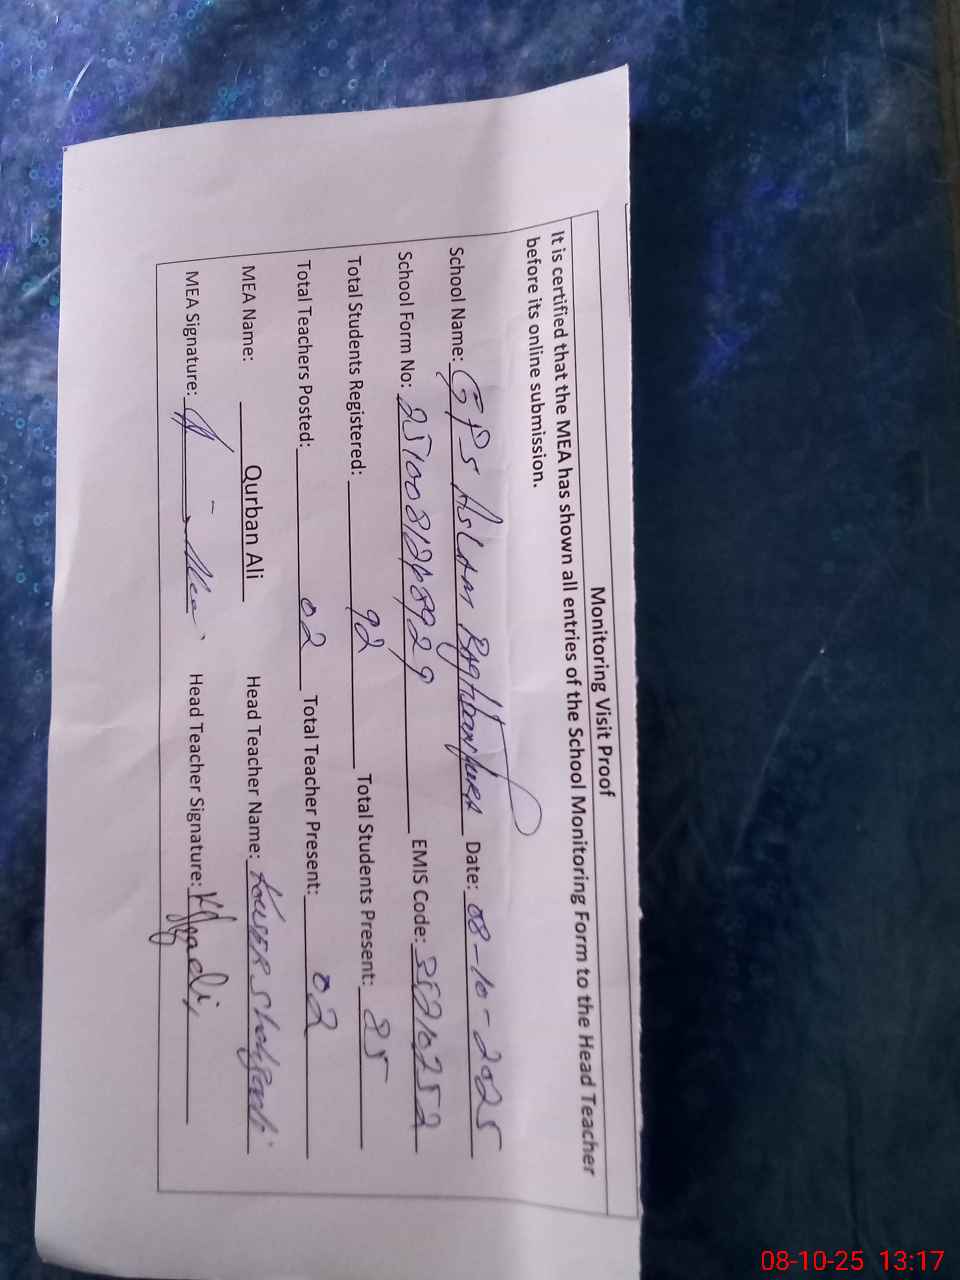 Monitoring Visit Proof
It is certified that the MEA has shown all entries of the School Monitoring Form to the Head Teacher
before its online submission.
School Name: GPS Aslam Date: 08-10-2025
School Form No: EMIS Code:
Total Students Registered: 92 Total Students Present: 85
Total Teachers Posted: 02 Total Teacher Present: 02
MEA Name: Qurban Ali Head Teacher Name:
MEA Signature: Head Teacher Signature:
08-10-25 13:17